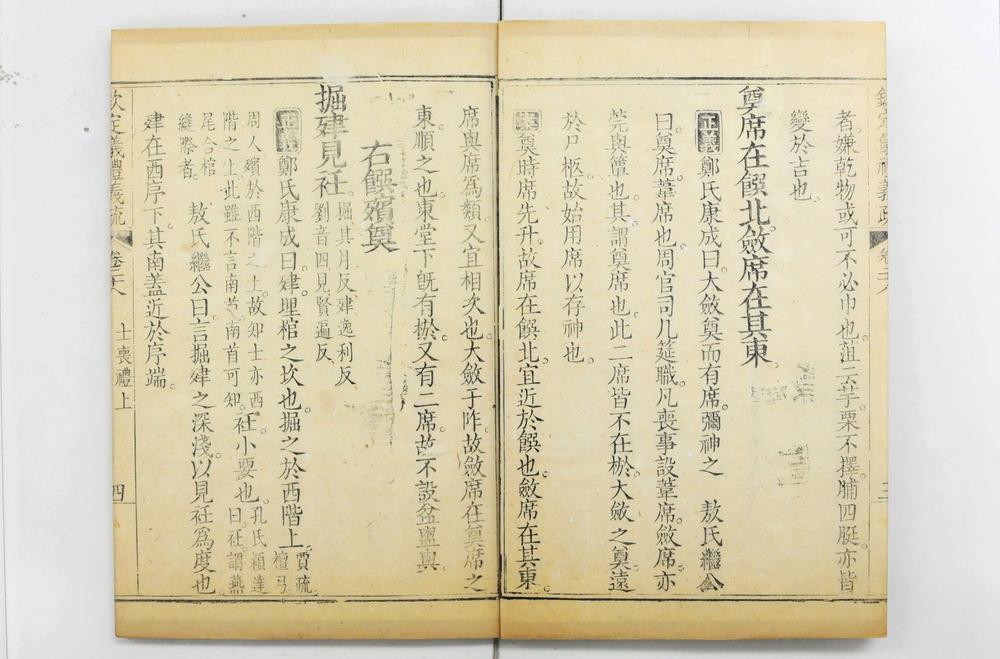 者嫌乾物或可不必巾也。菹云芋栗不擇脯四脡亦皆
變於吉也。
奠席在饌北。斂席在其東。
正義 鄭氏康成曰。大斂奠而有席。彌神之 敖氏繼公
曰。奠席。葦席也。周官司几筵職。凡喪事設葦席。斂席。亦
莞與簟也。其謂奠席也。此二席皆不在棜。大斂之奠遠
於尸柩。故始用席以存神也。
案 奠時席先升。故席在饌北。宜近於饌也。斂席在其東。
三
席與席為類。又宜相次也。大斂于阼。故斂席在奠席之
東。順之也。東堂下既有棜。又有二席。故不設盆盥與
右饌殯奠
掘肂見衽。掘其月反肂逸利反
劉音四見賢遍反
正義 鄭氏康成曰。肂。埋棺之坎也。掘之於西階上。賈疏。檀弓
周人殯於西階之上。故知士亦西
階之上。此雖不言南首。南首可知。衽。小要也。孔氏穎達曰。衽。謂燕
尾合棺
縫際者。 敖氏繼公曰。言掘肂之深淺。以見衽為度也。
肂在西序下。其南蓋近於序端。
欽定儀禮義疏 卷二十八 士喪禮上 四